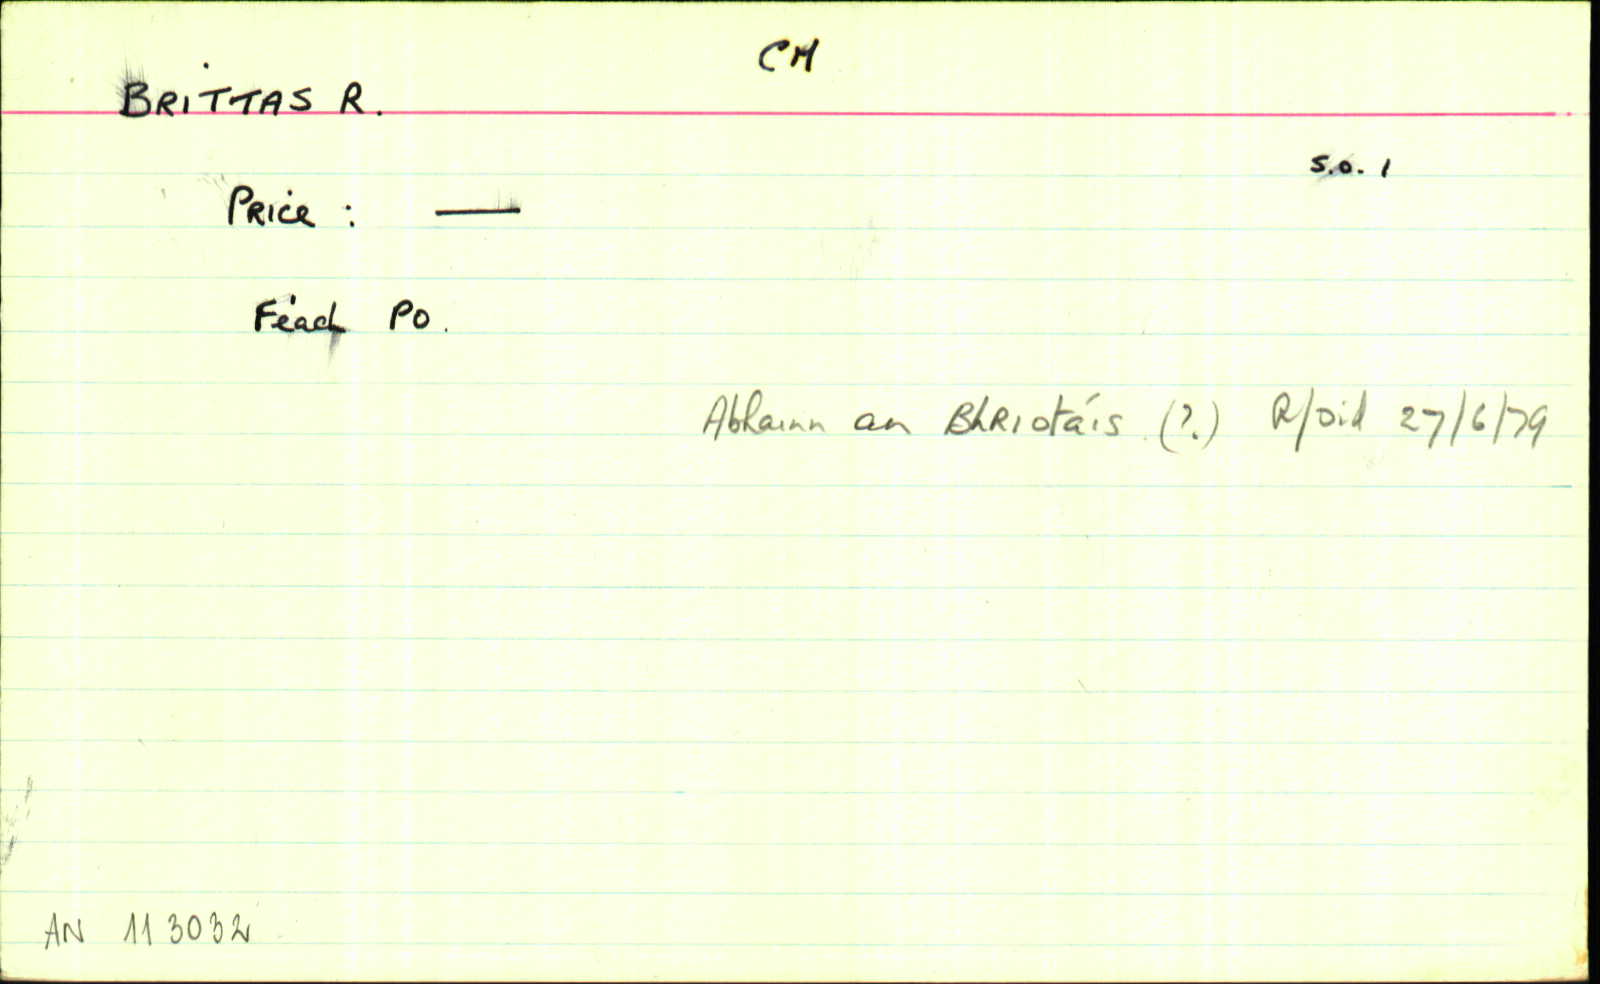 CM
BRITTAS R.
S.O. 1
PRICE : —
Féach PO.
Abhainn an Bhriotáis (?) R/Oid 27/6/79
AN 113032